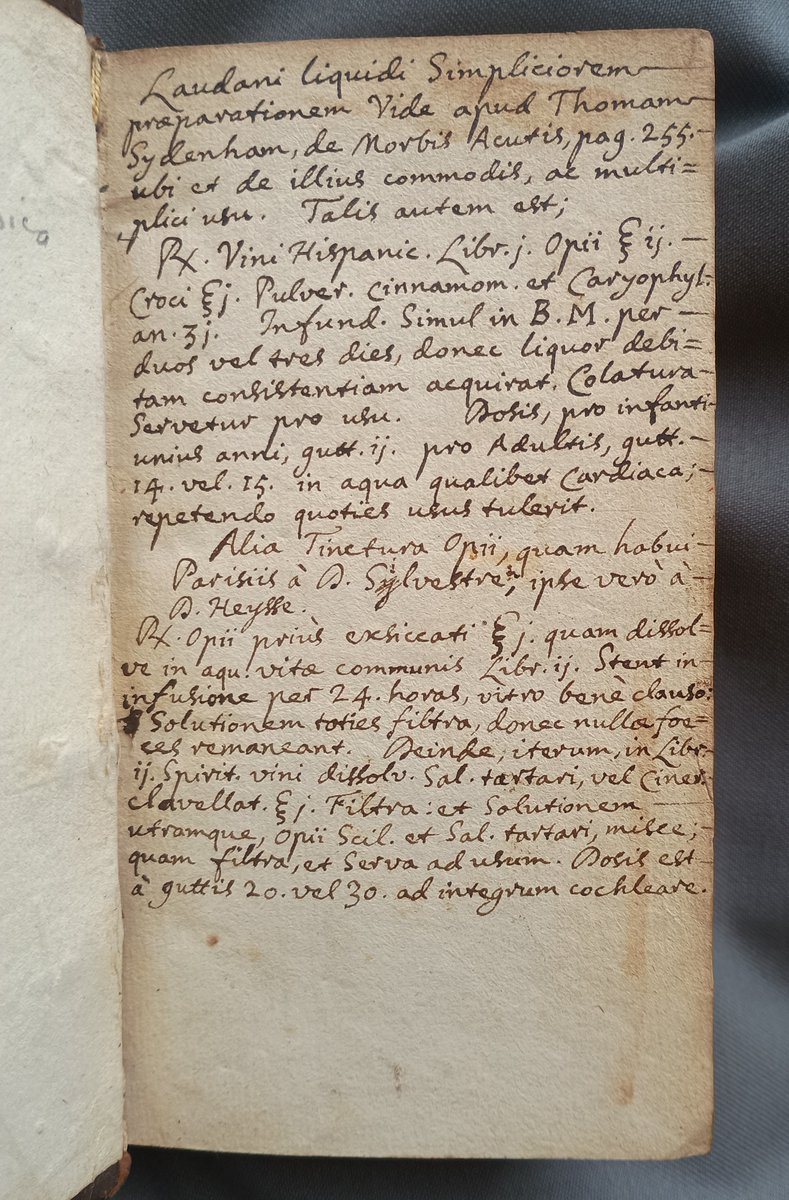 Laudani liquidi Simpliciorem
præparationem Vide apud Thomam
Sydenham, de Morbis Acutis, pag. 255.
ubi et de illius commodis, ac multi=
plici usu. Talis autem est;
℞. Vini Hispanic. Libr. j. Opii ℥ ij.
Croci ℥j. Pulver. cinnamom. et Caryophyl.
an. ʒj. Infund. Simul in B. M. per
duos vel tres dies, donec liquor debi=
tam consistentiam acquirat. Colatura
Servetur pro usu. Dosis, pro infanti
unius anni, gutt. ij. pro Adultis, gutt.
14. vel. 15. in aqua qualibet Cardiaca;
repetendo quoties usus tulerit.
Alia Tinctura Opii, quam habui
Parisiis à D. Sylvestre, ipse verò à
D. Heysse.
℞. Opii priùs exsiccati ℥ j. quam dissol=
ve in aqu. vitæ communis Libr. ij. Stent in
infusione per 24. horas, vitro benè clauso:
Solutionem toties filtra, donec nullæ foe=
ces remaneant. Deinde, iterum, in Libr.
ij. Spirit. vini dissolv. Sal. tartari, vel Ciner.
clavellat. ℥ j. Filtra: et Solutionem
utramque, Opii Scil. et Sal. tartari, misce;
quam filtra, et Serva ad usum. Dosis est
à guttis 20. vel 30. ad integrum cochleare.